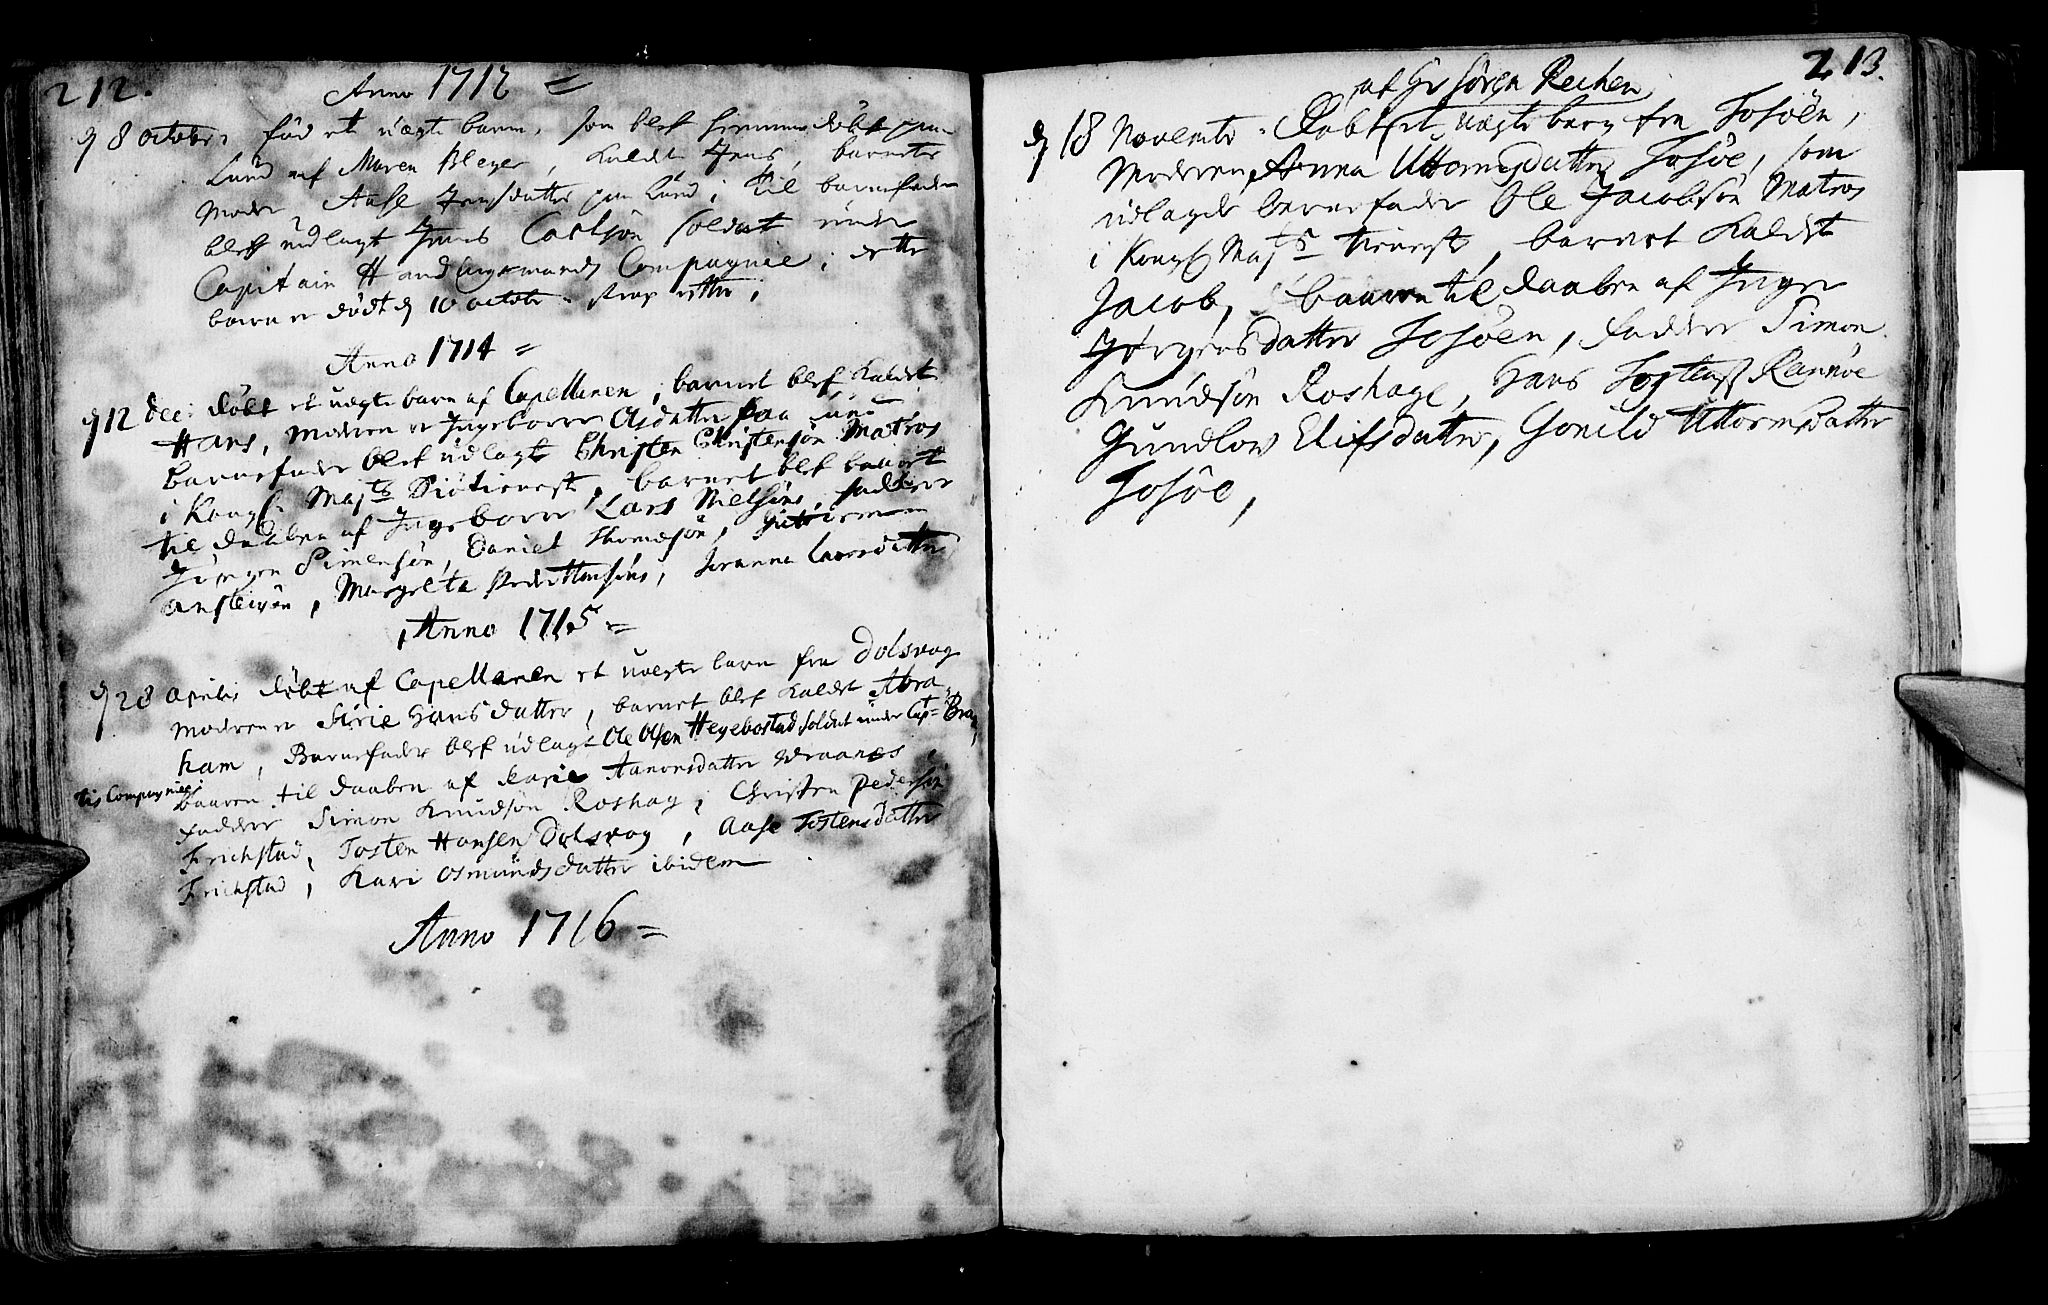 212.
Anno 1712 =
d 8 october föd et uægte barn, som blef hiemmedöbt paa
Lund af Maren Bleger, kaldt Jens, barnets
Moder Aase Jensdatter paa Lund; til barnefader
blef udlagt Jens Carlsön soldat under
Capitain Compagnie; dette
barn er dödt d 10 octobr. strax efter;
Anno 1714 =
d 12 dec: döbt et uægte barn af Capellanen, barnet blef kaldet
Hans, moderen er Ingeborre Olsdatter paa Lund
barnefader blef udlagt Christen Christensön Matros
i Kongl. Majts Siötieneste, barnet blef baaret
til daaben af Ingeborre Lars Nielsöns, faddere
Jörgen Simensön, Daniel Thomesön, Guttorm
ansteinsön, Margreta Thomsöns, Joranna Larsdatter
Anno 1715 =
d 28 Aprilis döbt af Capellanen et uægte barn fra Dolsvog
moderen er Sirie Hansdatter, barnet blef kaldet Abra
ham, Barnefader blef udlagt Ole Olsen Hegebostad soldat under Capt= Bra
tis Compagnie;
baaren til daaben af Karie Aanonsdatter Udraanes
faddere Simon Knudsön Roshag, Christen Pedersön
Frichstad, Tosten Hansen Dolsvog, Aase Tostensdatter
Frichstad, Kari Osmundsdatter ibidem
Anno 1716 =
213.
af Hr Sören Reehen
d 18 Novembr. Döbt et uægte barn fra Tosöen,
Moderen Anna Uttormsdatter Tosöe, som
udlagde barnefader Ole Jacobsön Matros
i Kongl Majts tieneste, barnet kaldet
Jacob, baaren til daaben af Inger
Jörgensdatter Tosöen, fadder Simon
Knudsön Roshage, Hans Tostens Rannöe
Gundlov Elifsdatter, Gonild Uttormsdatter
Tosöe,